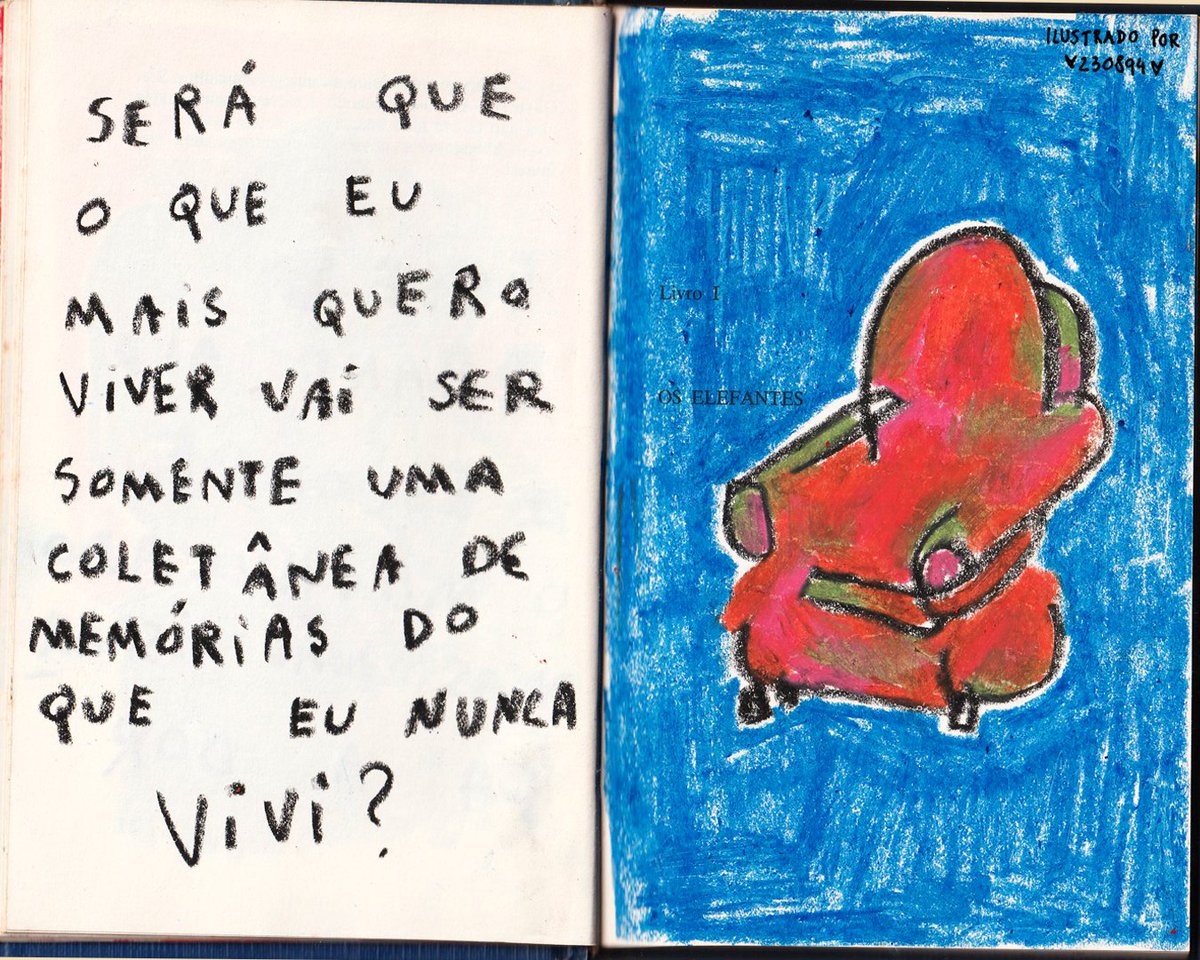 SERÁ QUE
O QUE EU
MAiS QUERO
ViVER VAi SER
SOMENTE UMA
COLETÂNEA DE
MEMÓRiAS DO
QUE EU NUNCA
ViVi?
ILUSTRADO POR
230894
Livro I
OS ELEFANTES